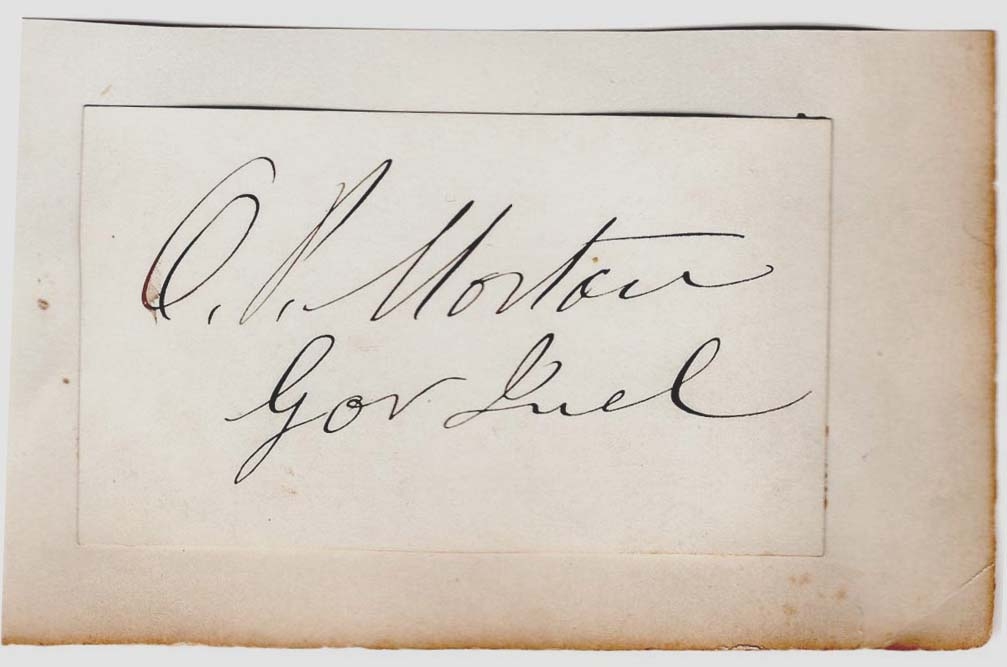 O. P. Morton
Gov Ind